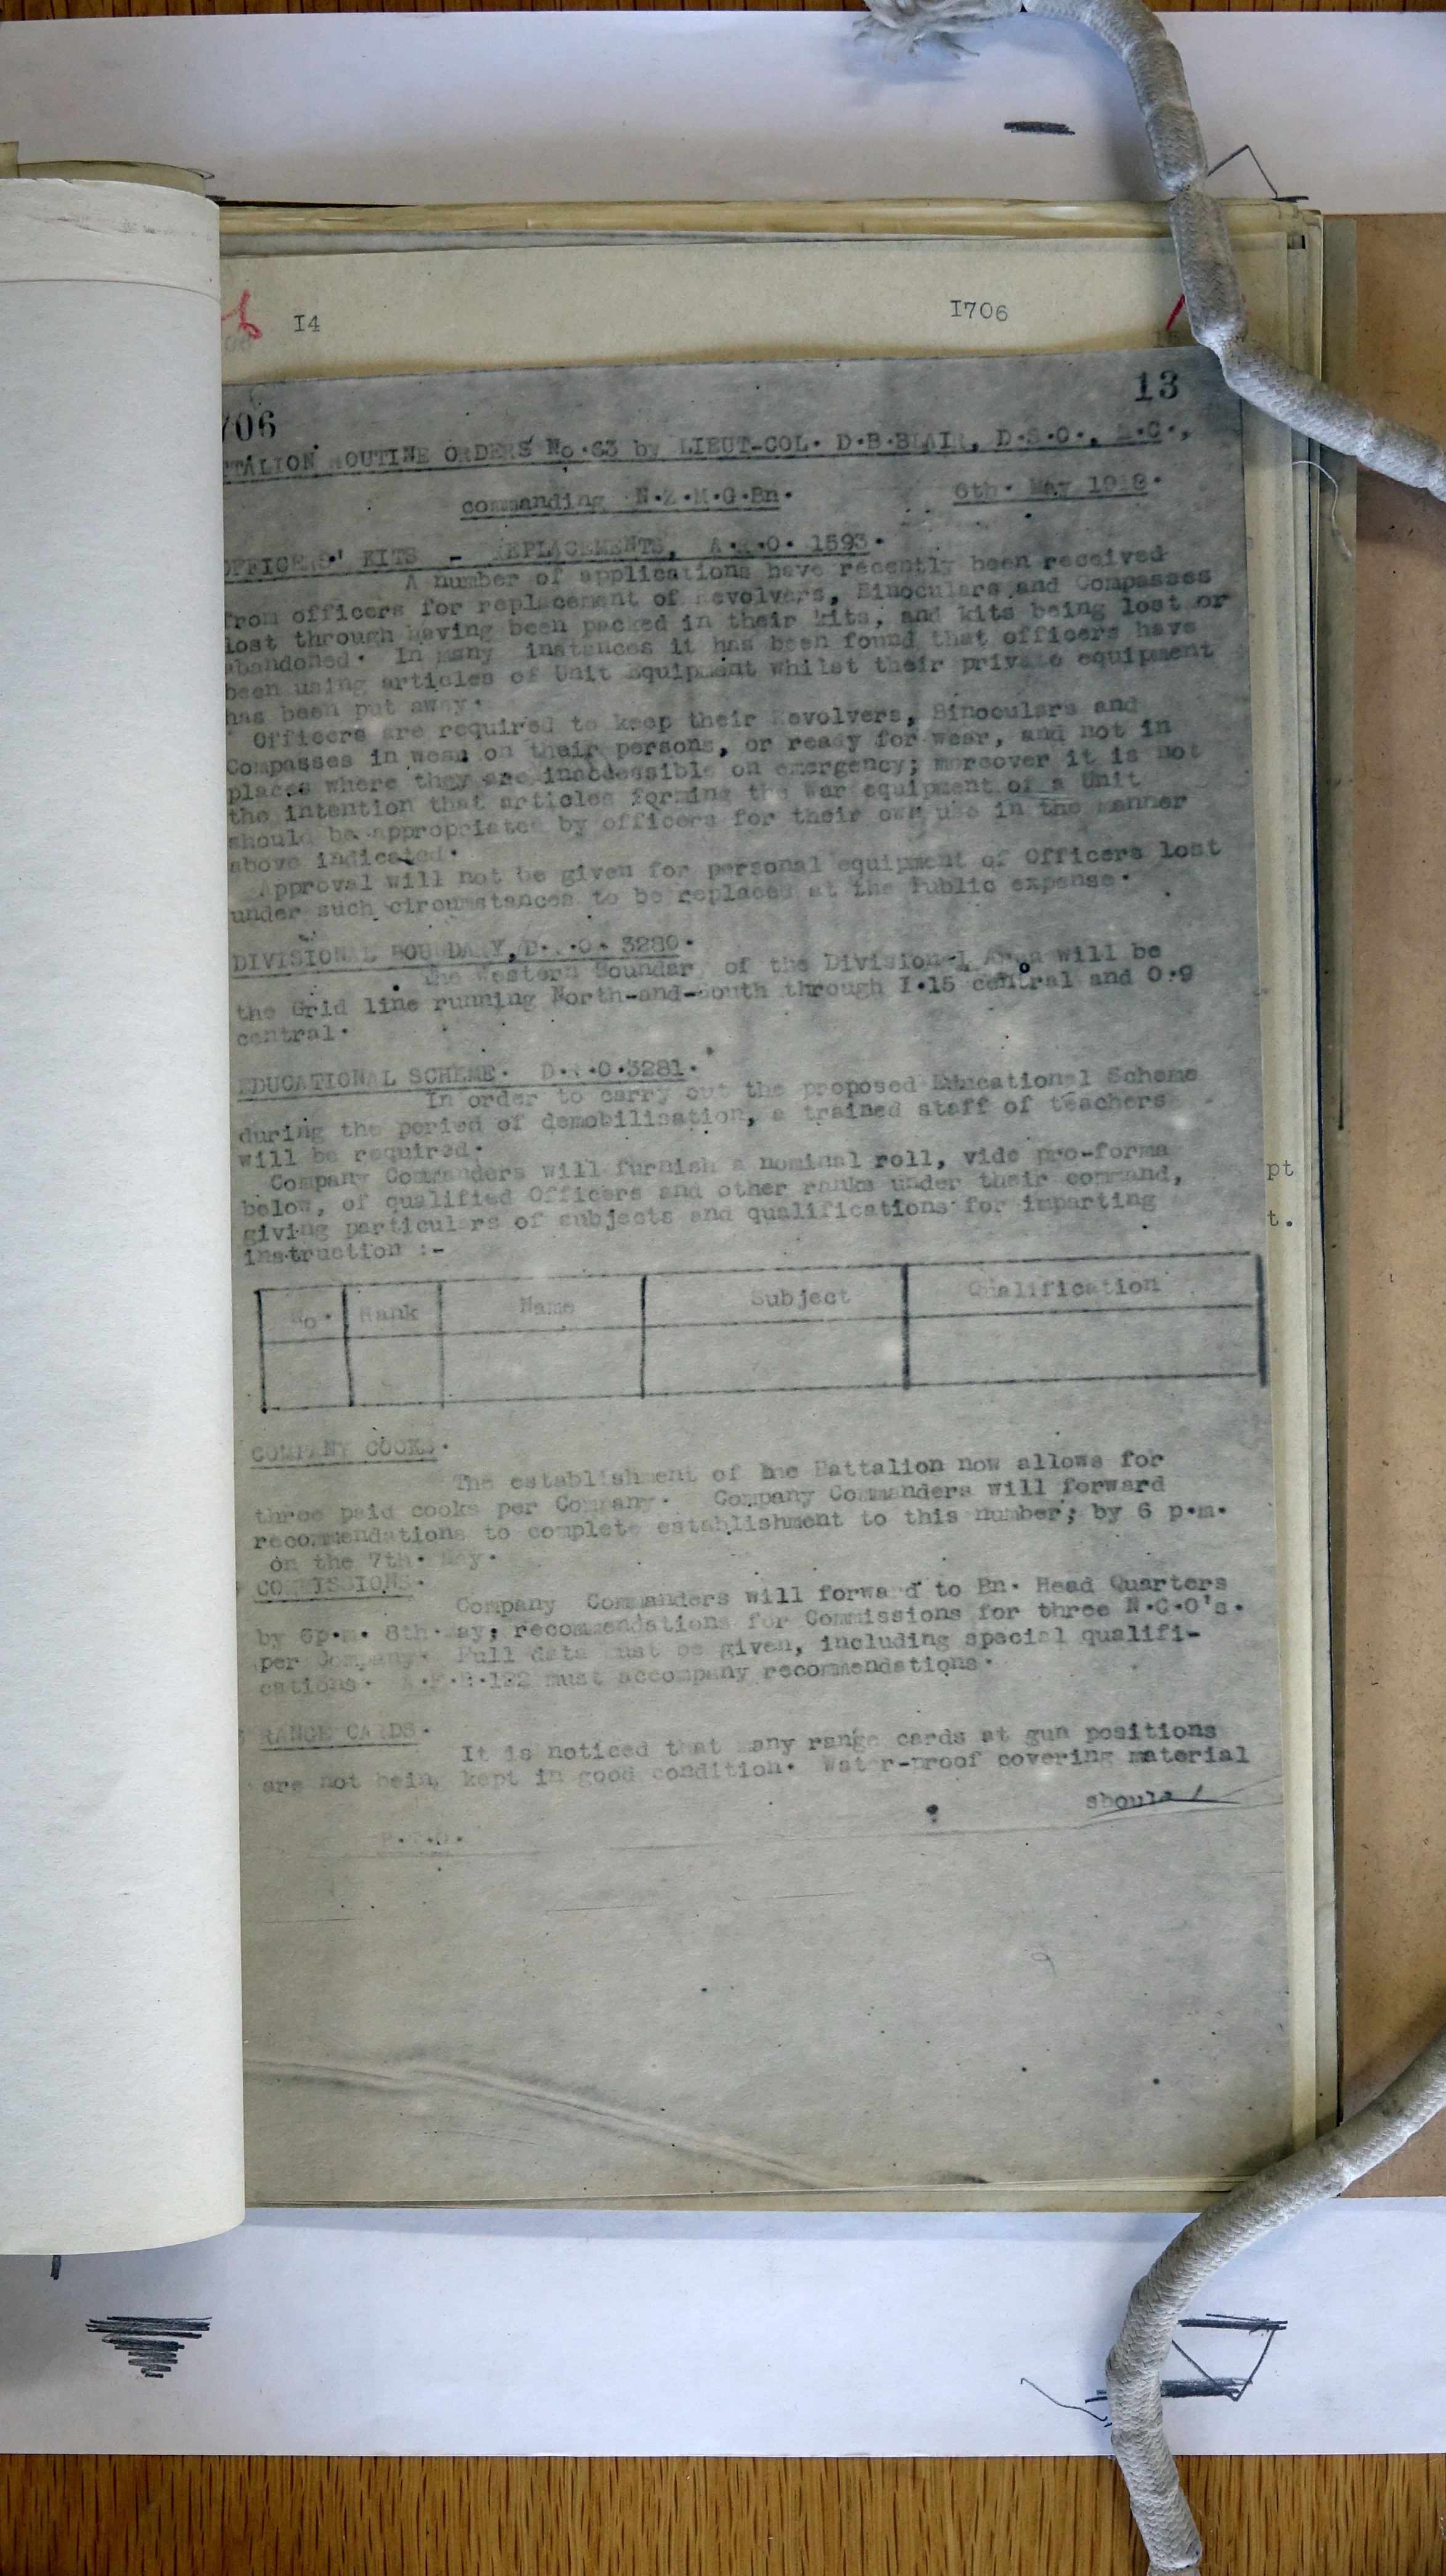 I4 I706
13
706
TTALION ROUTINE ORDERS No.63 by LIEUT-COL. D.B.BLAIR, D.S.O., M.C.,
commanding N.Z.M.G.Bn. 6th. May 1918.
OFFICERS' KITS - REPLACEMENTS, A.R.O. 1593.
A number of applications have recently been received
from officers for replacement of Revolvers, Binoculars and Compasses
lost through having been packed in their kits, and kits being lost or
abandoned. In many instances it has been found that officers have
been using articles of Unit Equipment whilst their private equipment
has been put away.
Officers are required to keep their Revolvers, Binoculars and
Compasses in wear on their persons, or ready for wear, and not in
places where they are inaccessible on emergency; moreover it is not
the intention that articles forming the War equipment of a Unit
should be appropriated by officers for their own use in the manner
above indicated.
Approval will not be given for personal equipment of Officers lost
under such circumstances to be replaced at the Public expense.
DIVISIONAL BOUNDARY, D.R.O. 3280.
The Western Boundary of the Divisional Area will be
the Grid line running North-and-South through I.15 central and O.9
central.
EDUCATIONAL SCHEME. D.R.O.3281.
In order to carry out the proposed Educational Scheme
during the period of demobilisation, a trained staff of teachers
will be required.
Company Commanders will furnish a nominal roll, vide pro-forma
below, of qualified Officers and other ranks under their command,
giving particulars of subjects and qualifications for imparting
instruction :-
pt
t.
No. Rank Name Subject Qualification
COMPANY COOKS.
The establishment of the Battalion now allows for
three paid cooks per Company. Company Commanders will forward
recommendations to complete establishment to this number; by 6 p.m.
on the 7th. May.
COMMISSIONS.
Company Commanders will forward to Bn. Head Quarters
by 6p.m. 8th. May; recommendations for Commissions for three N.C.O's.
per Company. Full data must be given, including special qualifi-
cations. A.F.B.122 must accompany recommendations.
RANGE CARDS.
It is noticed that many range cards at gun positions
are not being kept in good condition. Water-proof covering material
should /
P.T.O.